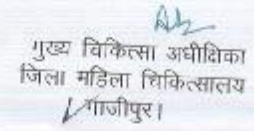 मुख्य चिकित्सा अधीक्षिका
जिला महिला चिकित्सालय
गाजीपुर।